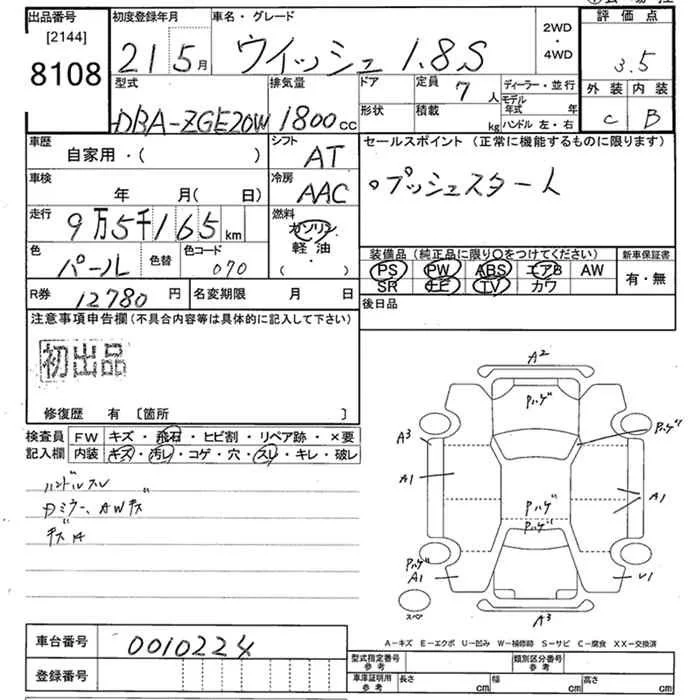 出品番号
[2144]
8108
初度登録年月
21 5月
車名・グレード
ウイッシュ 1.8S
2WD
・
4WD
評価点
3.5
外装 内装
C B
型式
DBA-ZGE20W
排気量
1800cc
ドア
形状
定員 7 人
積載 kg
ディーラー・並行
モデル年式 年
ハンドル 左・右
車歴
自家用・( )
シフト
AT
セールスポイント (正常に機能するものに限ります)
○プッシュスタート
車検
年 月( 日)
冷房
AAC
走行
9万5千165km
燃料
ガソリン
軽油
( ・ )
色
パール
色替
色コード
070
装備品 (純正品に限り○をつけてください)
PS PW ABS エアB AW
SR ナビ TV カワ
新車保証書
有・無
R券 12780円
名変期限 月 日
後日品
注意事項申告欄 (不具合内容等は具体的に記入して下さい)
初出品
修復歴 有 [箇所 ]
検査員
記入欄
FW キズ・飛石・ヒビ割・リペア跡・×要
内装 キズ・汚レ・コゲ・穴・スレ・キレ・破レ
ハンドルスレ
Dミラー、AWキズ
A2
Pハゲ
Pハゲ
A3
A1
A1
Pハゲ
Pハゲ
Pハゲ
A1
U1
スペア
A3
A-キズ E-エクボ U-凹み W-補修跡 S-サビ C-腐食 XX-交換済
車台番号
0010224
登録番号
型式指定番号
参考
類別区分番号
参考
車庫証明用
参考
長さ cm
幅 cm
高さ cm